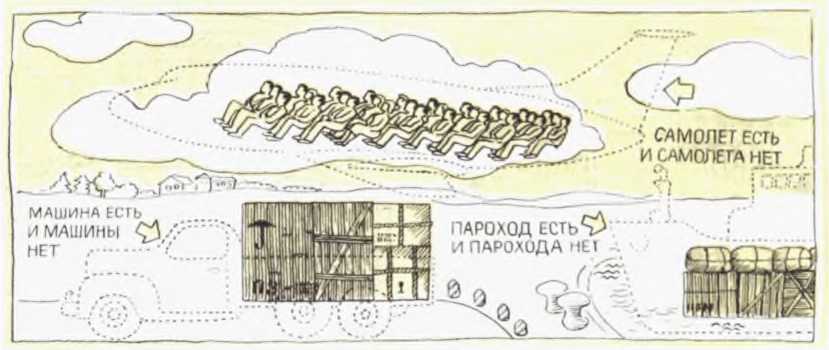 САМОЛЕТ ЕСТЬ
И САМОЛЕТА НЕТ
МАШИНА ЕСТЬ
И МАШИНЫ
НЕТ
ПАРОХОД ЕСТЬ
И ПАРОХОДА НЕТ